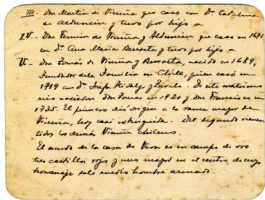 III. Don Martin de Vicuña que casó con Dª Catalina
de Aldunciin y tuvo por hijo
IV.- Don Fermin de Vicuña y Aldunciin que casó en 1671
en Dª Ana María Berroeta y tuvo por hijo
V.- Don Tomás de Vicuña y Berroeta, nacido en 1689,
fundador de la familia en Chile, quien casó en
1719 con Dª Hidalgo y Zavala. De este matrimonio
nacieron Don Tomas en 1720 y Don Francisco en
1725. El primero dió origen a la rama mayor de
Vicuña, hoy casi extinguida. Del segundo vienen
todos los demás Vicuña chilenos.
El escudo de la casa de es en campo de oro
tres castillos rojos y uno mayor en el centro de cuyo
homenaje sale medio hombre armado